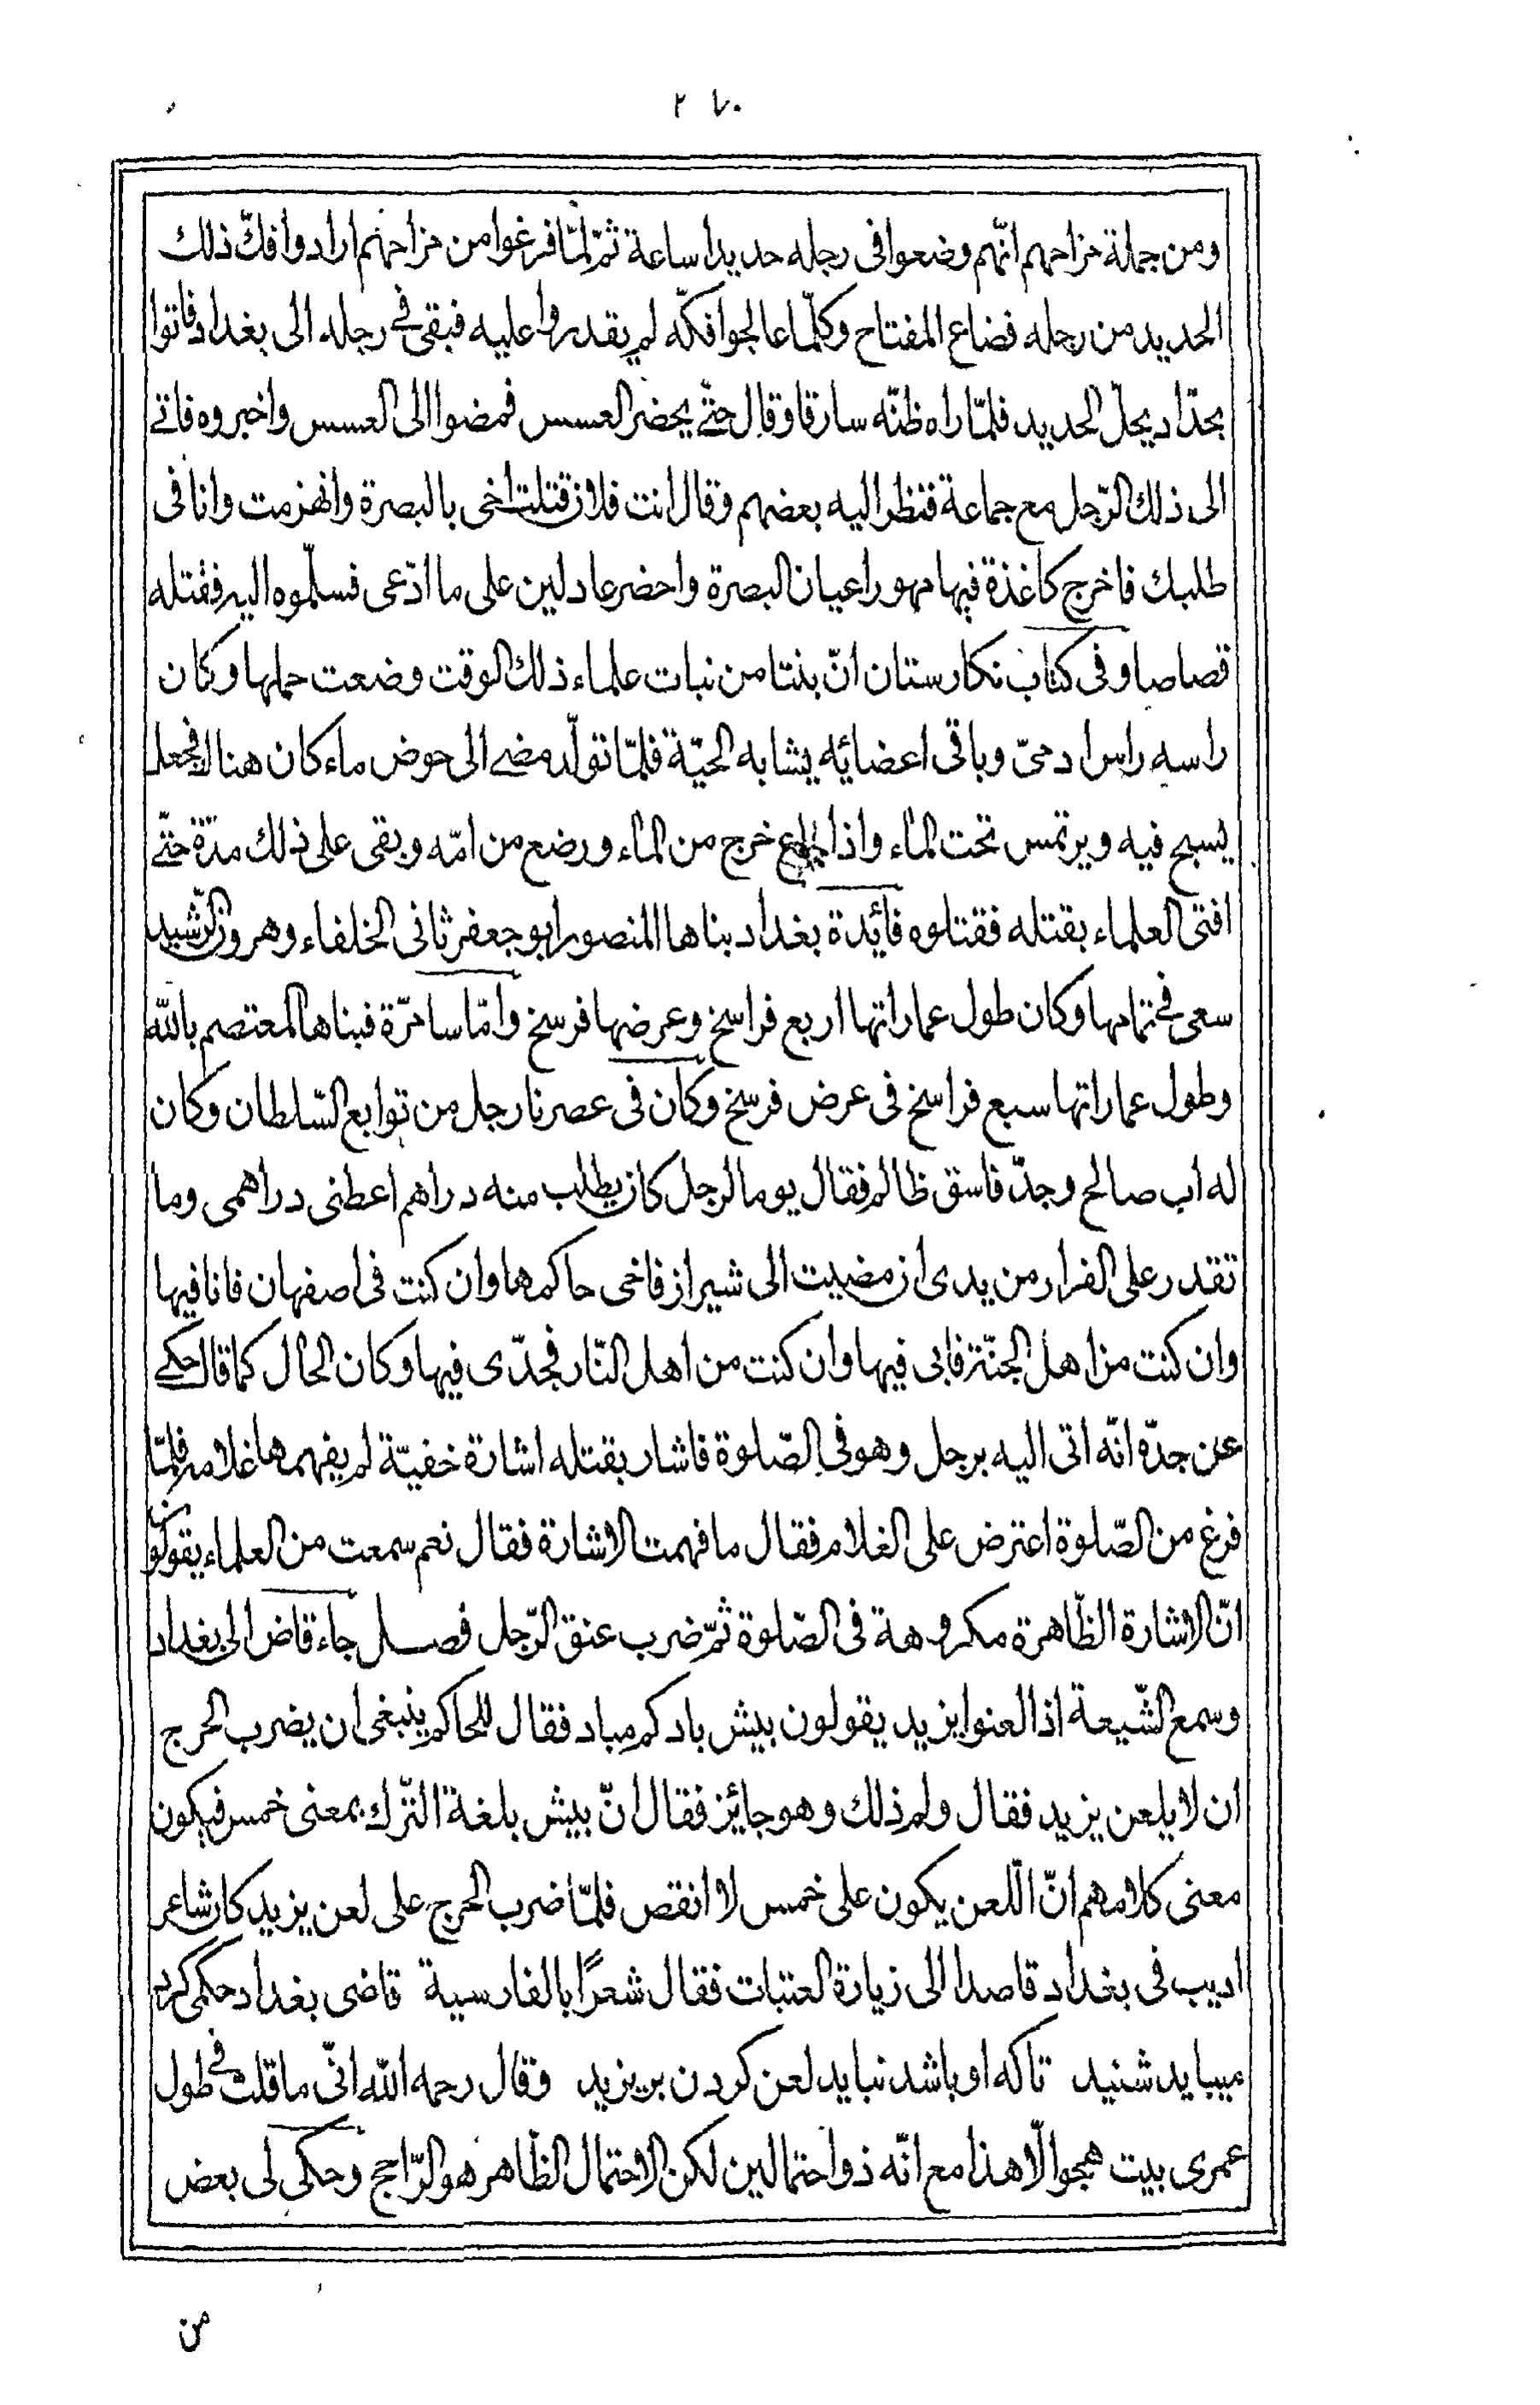 ٢٧٠
ومن جملة مزاحهم انّهم وضعوا فى رجله حديدا ساعة ثمّ لمّا فرغوا من مزاحهم ارادوا فكّ ذلك
الحديد من رجله فضاع المفتاح وكلّما عالجوا فكّه لم يقدروا عليه فبقى فى رجله الى بغداد فاتوا
بحدّاد يحلّ الحديد فلمّا راه ظنّه سارقا وقال حتّى يحضر العسس فمضوا الى العسس واخبروه فاتى
الى ذلك الرّجل مع جماعة فنظر اليه بعضهم وقال انت فلان قتلت اخى بالبصرة وانهزمت وانا فى
طلبك فاخرج كاغذة فيها مهور اعيان البصرة واحضر عادلين على ما ادّعى فسلّموه اليه فقتله
قصاصا وفى كتاب نكارستان انّ بنتا من نبات علماء ذلك الوقت وضعت حملها وكان
راسه راس ادمىّ وباقى اعضائه يشابه الحيّة فلمّا تولّد مضى الى حوض ماء كان هناك فجعل
يسبح فيه ويرتمس تحت الماء واذا جاع خرج من الماء ورضع من امّه وبقى على ذلك مدّة حتّى
افتى العلماء بقتله فقتلوه فائدة بغداد بناها المنصور ابو جعفر ثانى الخلفاء وهرون الرّشيد
سعى فى تمامها وكان طول عماراتها اربع فراسخ وعرضها فرسخ وامّا سامرّة فبناها المعتصم بالله
وطول عماراتها سبع فراسخ فى عرض فرسخ وكان فى عصرنا رجل من توابع السّلطان وكان
له اب صالح وجدّ فاسق ظالم فقال يوما لرجل كان يطلب منه دراهم اعطنى دراهمى وما
تقدر على الفرار من يدى ان مضيت الى شيراز فاخى حاكمها وان كنت فى اصفهان فانا فيها
وان كنت من اهل الجنّة فابى فيها وان كنت من اهل النّار فجدّى فيها وكان الحال كما قال حكى
عن جدّه انّه اتى اليه برجل وهو فى الصّلوة فاشار بقتله اشارة خفيّة لم يفهمها غلامه فلمّا
فرغ من الصّلوة اعترض على الغلام فقال ما فهمت الاشارة فقال نعم سمعت من العلماء يقولون
انّ الاشارة الظّاهرة مكروهة فى الصّلوة ثمّ ضرب عنق الرّجل فصل جاء قاض الى بغداد
وسمع الشّيعة اذا لعنوا يزيد يقولون بيش باد كم مباد فقال للحاكم ينبغى ان يضرب الحرج
ان لا يلعن يزيد فقال ولم ذلك وهو جائز فقال انّ بيش بلغة التّرك بمعنى خمس فيكون
معنى كلامهم انّ اللّعن يكون على خمس لا انقص فلمّا ضرب الحرج على لعن يزيد كان شاعر
اديب فى بغداد قاصدا الى زيارة العتبات فقال شعرًا بالفارسية قاضى بغداد حكمى كرد
ميبايد شنيد تاكه او باشد نبايد لعن كردن بر يزيد وقال رحمه الله انّى ما قلت فى طول
عمرى بيت هجو الّا هذا مع انّه ذو احتمالين لكن الاحتمال الظّاهر هو الرّاجح وحكى لى بعض
من